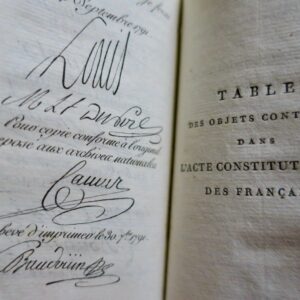 Septembre 1791.
Louis
M. L. F. Du Port
Pour copie conforme à l'original
déposé aux archives nationales
Camus
achevé d'imprimer le 30. 7bre 1791.
Baudouin
TABLE
DES OBJETS CONT
DANS
L'ACTE CONSTITUT
DES FRANÇA